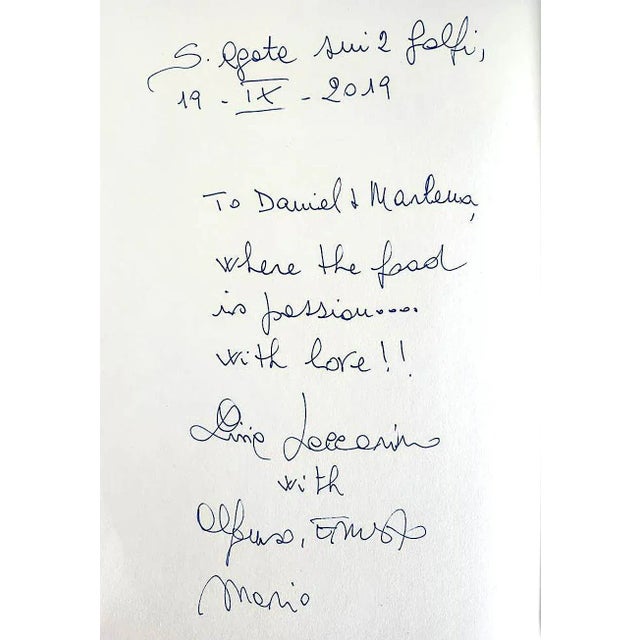 S. Agata sui 2 Golfi,
19 - IX - 2019
To Daniel & Marlena,
where the food
is passion....
with love!!
Livia Iaccarino
with
Alfonso, Ernesto
Mario